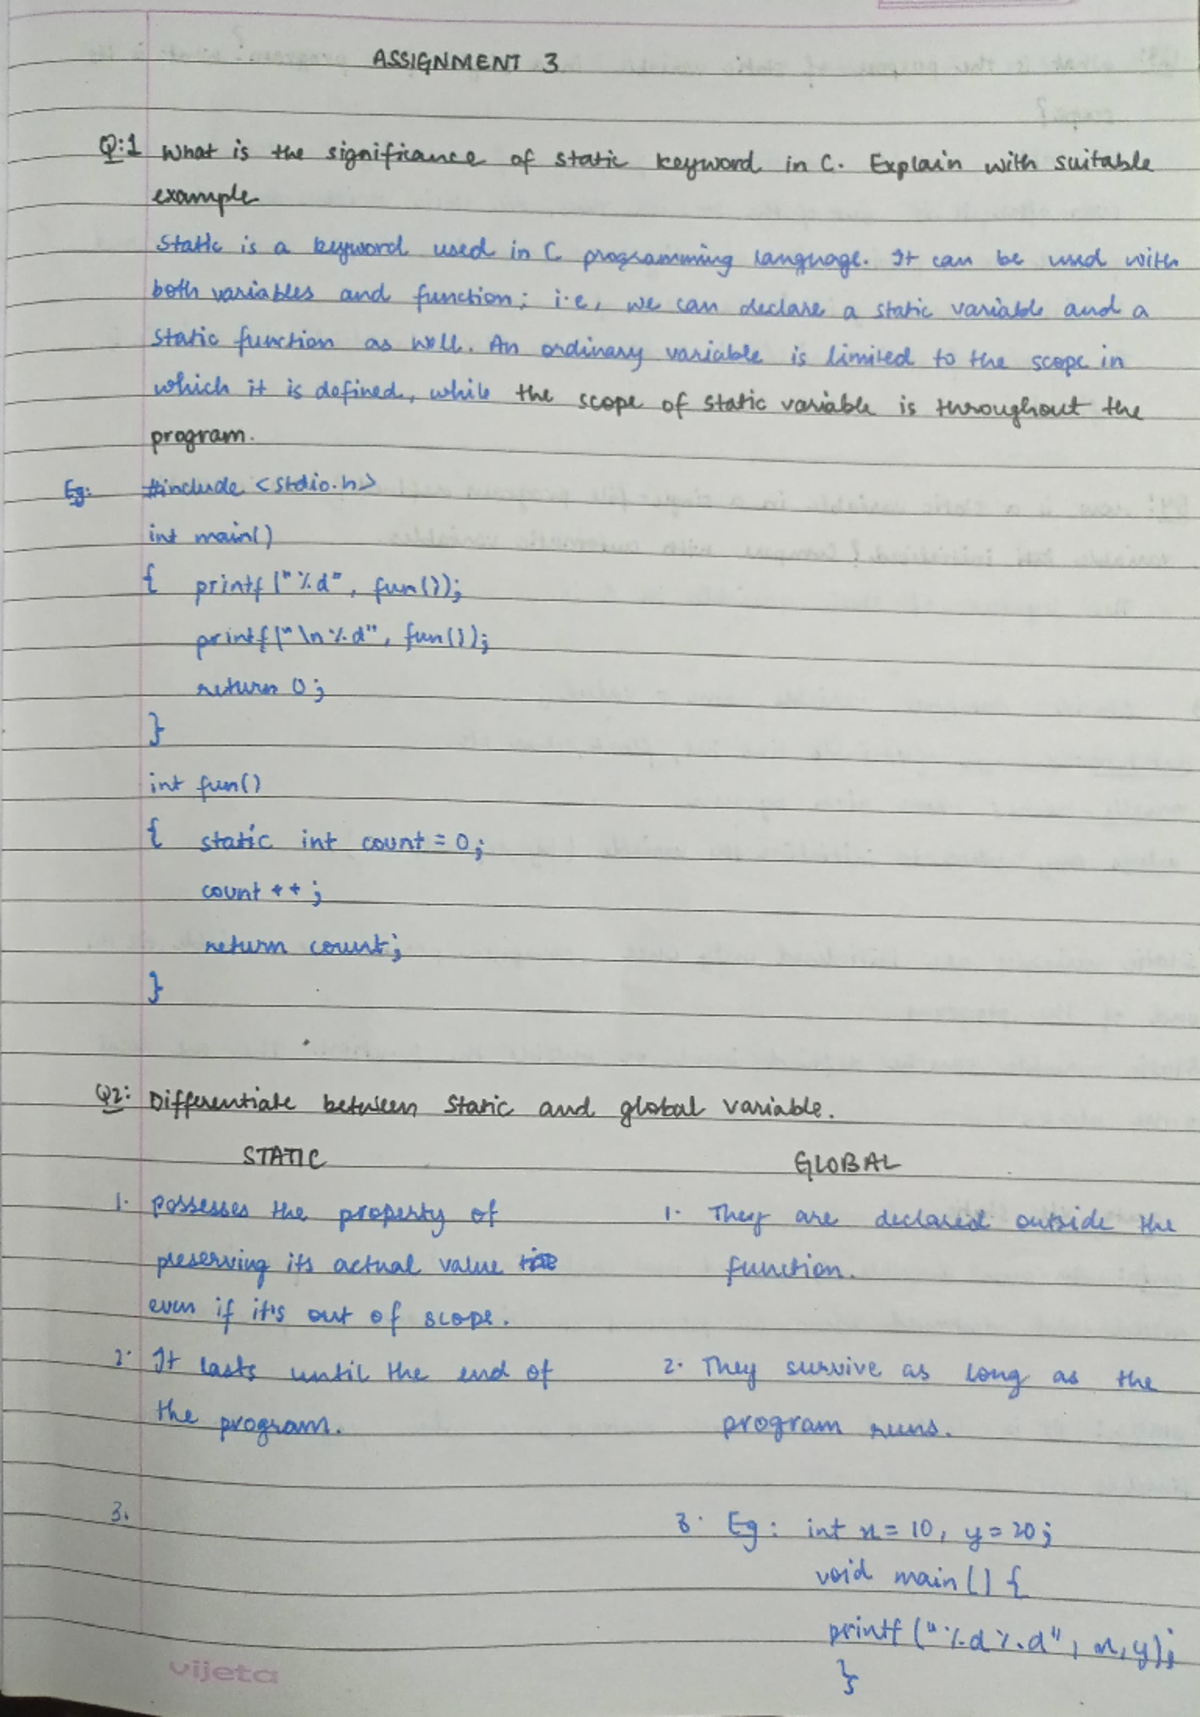 ASSIGNMENT 3
Q:1 What is the significance of static keyword in C. Explain with suitable
example
Static is a keyword used in C programming language. It can be used with
both variables and function; i.e, we can declare a static variable and a
static function as well. An ordinary variable is limited to the scope in
which it is defined, while the scope of static variable is throughout the
program.
Eg: #include <stdio.h>
int main()
{ printf ("%d", fun());
printf("\n%d", fun());
return 0;
}
int fun()
{ static int count = 0;
count ++;
return count;
}
Q2: Differentiate between static and global variable.
STATIC GLOBAL
1. Possesses the property of
preserving its actual value
even if it's out of scope.
1. They are declared outside the
function.
2. It lasts until the end of
the program.
2. They survive as long as the
program runs.
3.
3. Eg: int x = 10, y = 20;
void main() {
printf ("%d%d", x,y);
}
vijeta